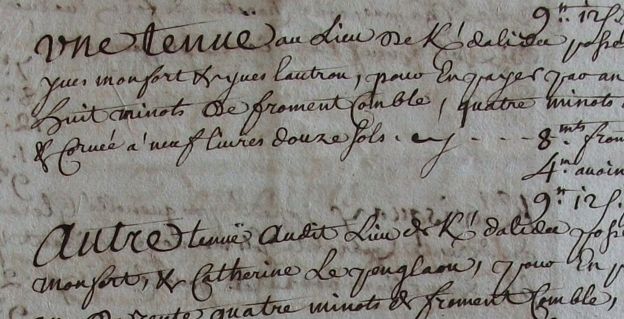 9lt 12s
Une tenuë au Lieu de K/dalidec possé
yves monfort & yves lautrou, pour En payer par an
huit minots de froment Comble, quatre minots
& Corvée à neuf livres douze sols. 8.mts from
4.m avoin
9lt 12s.
Autre tenuë audit Lieu de K/dalidec possé
monfort, & Catherine Le penglaou, pour En p
quatre minots de froment Comble,